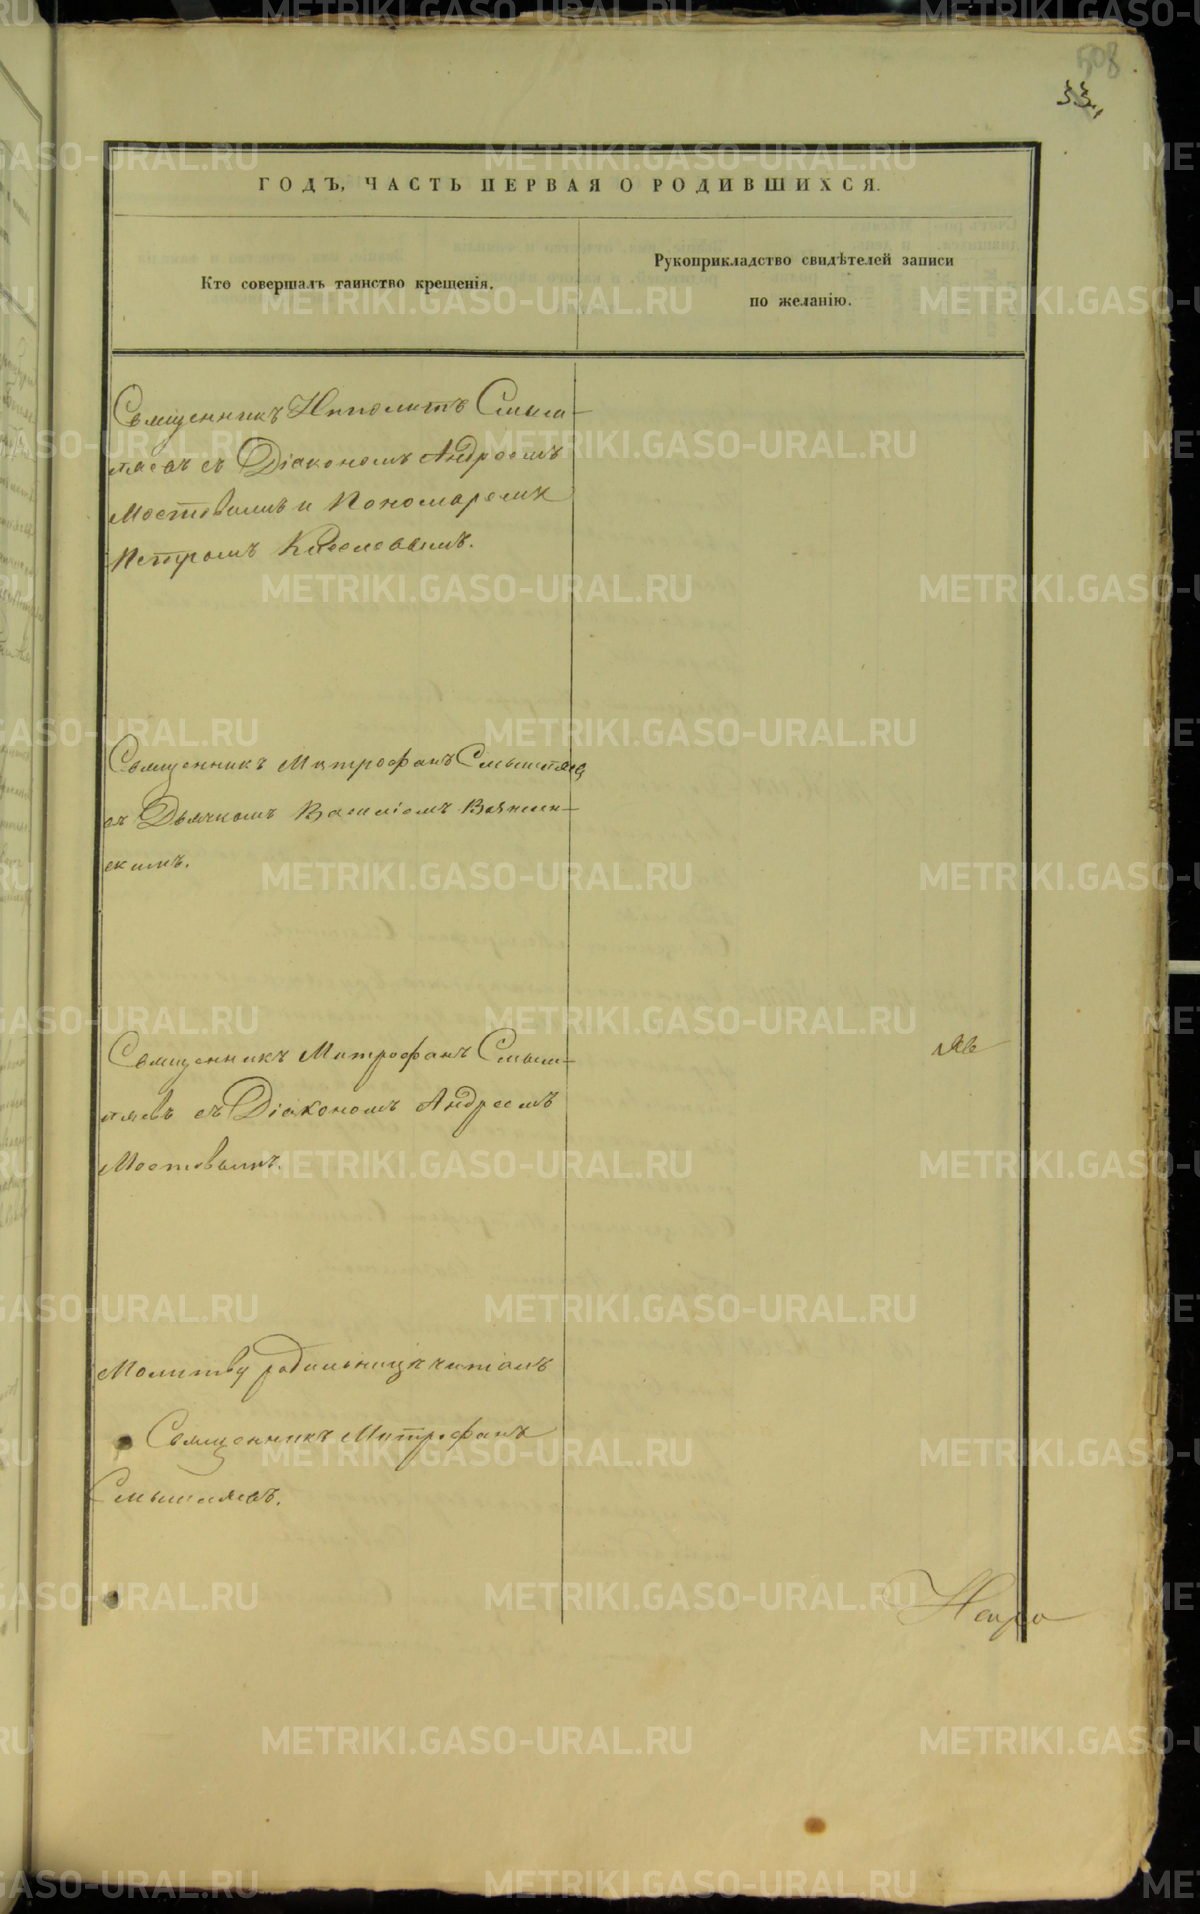 508
33.
ГОДЪ, ЧАСТЬ ПЕРВАЯ О РОДИВШИХСЯ.
Кто совершалъ таинство крещенія.
Рукоприкладство свидѣтелей записи
по желанію.
Священникъ Ипполитъ Смыш-
ляевъ съ Діакономъ Андреемъ
Мостовымъ и Пономаремъ
Петромъ Киселевымъ.
Священникъ Митрофанъ Смышляев
съ Дьячкомъ Василіемъ Вяжен-
скимъ.
Священникъ Митрофанъ Смыш-
ляевъ съ Діакономъ Андреемъ
Мостовымъ.
Молитву родильницѣ читалъ
Священникъ Митрофанъ
Смышляевъ.
METRIKI.GASO-URAL.RU